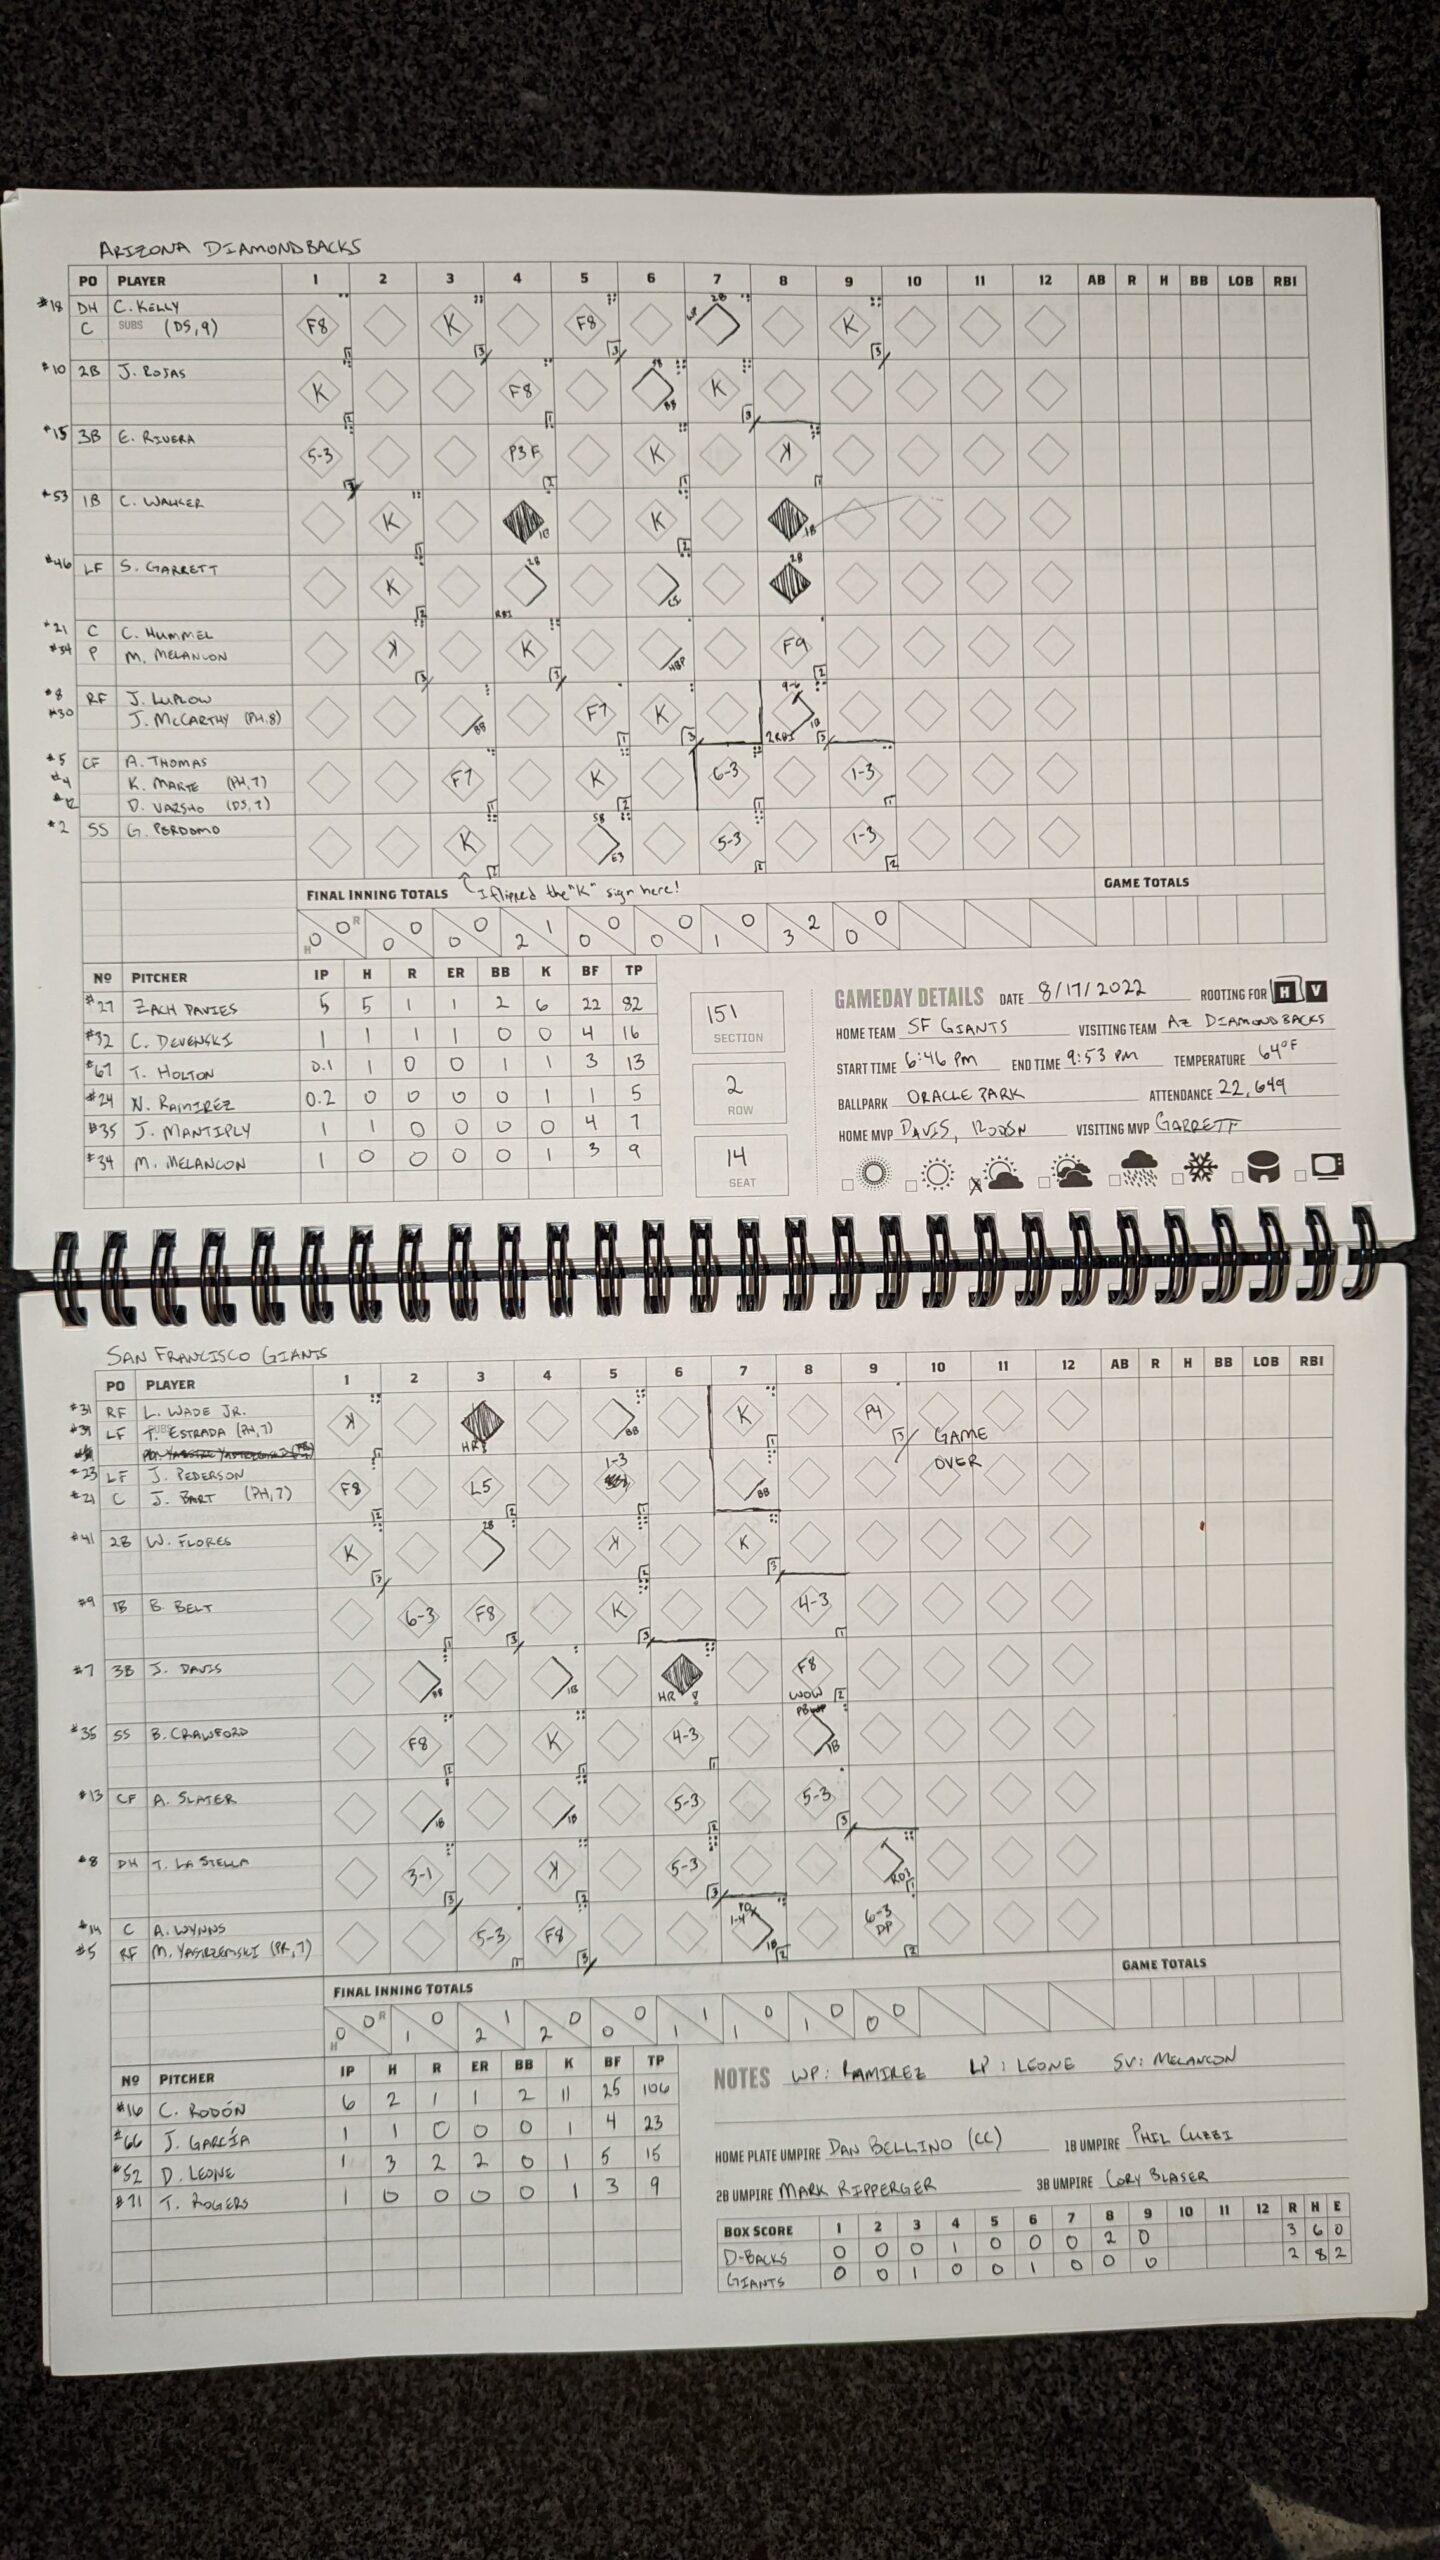 ARIZONA DIAMONDBACKS
PO PLAYER 1 2 3 4 5 6 7 8 9 10 11 12 AB R H BB LOB RBI
#18 DH C. KELLY F8 K F8 WP 2B K
C SUBS (DS, 9)
#10 2B J. ROJAS K F8 SB BB K
#15 3B E. RIVERA 5-3 P3F K K
#53 1B C. WALKER K 1B K 1B
#46 LF S. GARRETT K 2B RBI CI 2B
#21 C C. HUMMEL K K HBP F9
#34 P M. MELANCON
#8 RF J. LUPLOW BB F7 K 9-6 1B 2RBI
#30 J. MCCARTHY (PH, 8)
#5 CF A. THOMAS F7 K 6-3 1-3
#4 K. MARTE (PH, 7)
#12 D. VARSHO (DS, 7)
#2 SS G. PERDOMO K SB E3 5-3 1-3
FINAL INNING TOTALS I flipped the "K" sign here! GAME TOTALS
H 0 0 R 0 0 0 0 2 1 0 0 0 0 1 0 3 2 0 0
NO PITCHER IP H R ER BB K BF TP
#27 ZACH DAVIES 5 5 1 1 2 6 22 82
#32 C. DEVENSKI 1 1 1 1 0 0 4 16
#67 T. HOLTON 0.1 1 0 0 1 1 3 13
#24 N. RAMIREZ 0.2 0 0 0 0 1 1 5
#35 J. MANTIPLY 1 1 0 0 0 0 4 7
#34 M. MELANCON 1 0 0 0 0 1 3 9
151
SECTION
2
ROW
14
SEAT
GAMEDAY DETAILS DATE 8/17/2022 ROOTING FOR H V
HOME TEAM SF GIANTS VISITING TEAM AZ DIAMONDBACKS
START TIME 6:46 PM END TIME 9:53 PM TEMPERATURE 64°F
BALLPARK ORACLE PARK ATTENDANCE 22,649
HOME MVP DAVIS, RODON VISITING MVP GARRETT
SAN FRANCISCO GIANTS
PO PLAYER 1 2 3 4 5 6 7 8 9 10 11 12 AB R H BB LOB RBI
#31 RF L. WADE JR. K HR! BB K P4 GAME
#39 LF T. ESTRADA (PH, 7)
#23 LF J. PEDERSON F8 L5 1-3 BB OVER
#21 C J. BART (PH, 7)
#41 2B W. FLORES K 2B K K
#9 1B B. BELT 6-3 F8 K 4-3
#7 3B J. DAVIS BB 1B HR ! F8 WOW
#35 SS B. CRAWFORD F8 K 4-3 PB WP 1B
#13 CF A. SLATER 1B 1B 5-3 5-3
#8 DH T. LA STELLA 3-1 K 5-3 ROE
#14 C A. WYNNS 5-3 F8 PO 1-4 1B 6-3 DP
#5 RF M. YASTRZEMSKI (PR, 7)
FINAL INNING TOTALS GAME TOTALS
H 0 0 R 1 0 2 1 2 0 0 0 1 1 1 0 1 0 0 0
NO PITCHER IP H R ER BB K BF TP
#16 C. RODÓN 6 2 1 1 2 11 25 106
#66 J. GARCÍA 1 1 0 0 0 1 4 23
#52 D. LEONE 1 3 2 2 0 1 5 15
#71 T. ROGERS 1 0 0 0 0 1 3 9
NOTES WP: RAMIREZ LP: LEONE SV: MELANCON
HOME PLATE UMPIRE DAN BELLINO (CC) 1B UMPIRE PHIL CUZZI
2B UMPIRE MARK RIPPERGER 3B UMPIRE CORY BLASER
BOX SCORE 1 2 3 4 5 6 7 8 9 10 11 12 R H E
D-BACKS 0 0 0 1 0 0 0 2 0 3 6 0
GIANTS 0 0 1 0 0 1 0 0 0 2 8 2